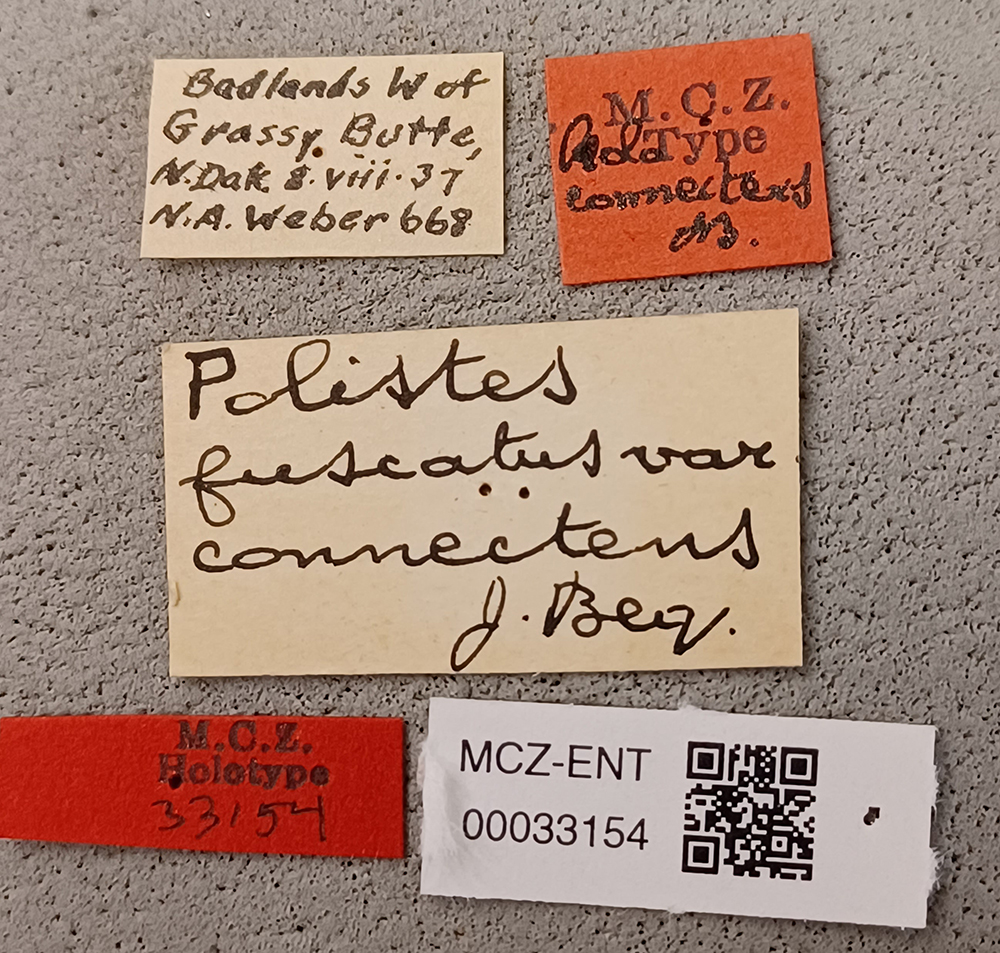 Badlands W of
Grassy Butte,
N.Dak 8.viii.37
N.A. Weber 668
M.C.Z.
Type
connectens
Polistes
fuscatus var.
connectens
J. Beq.
M.C.Z.
Holotype
33154
MCZ-ENT
00033154